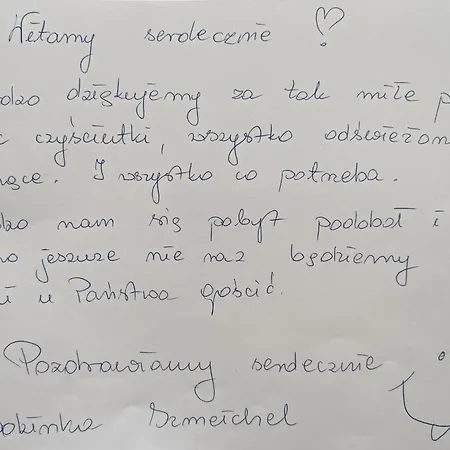 Witamy serdecznie
dziękujemy za tak miłe p
czyściutki, wszystko odświeżon
ące. I wszystko co potrzeba.
nam się pobyt podobał i
jeszcze nie raz będziemy
i u Państwa gościć.
Pozdrawiamy serdecznie
Szmeichel